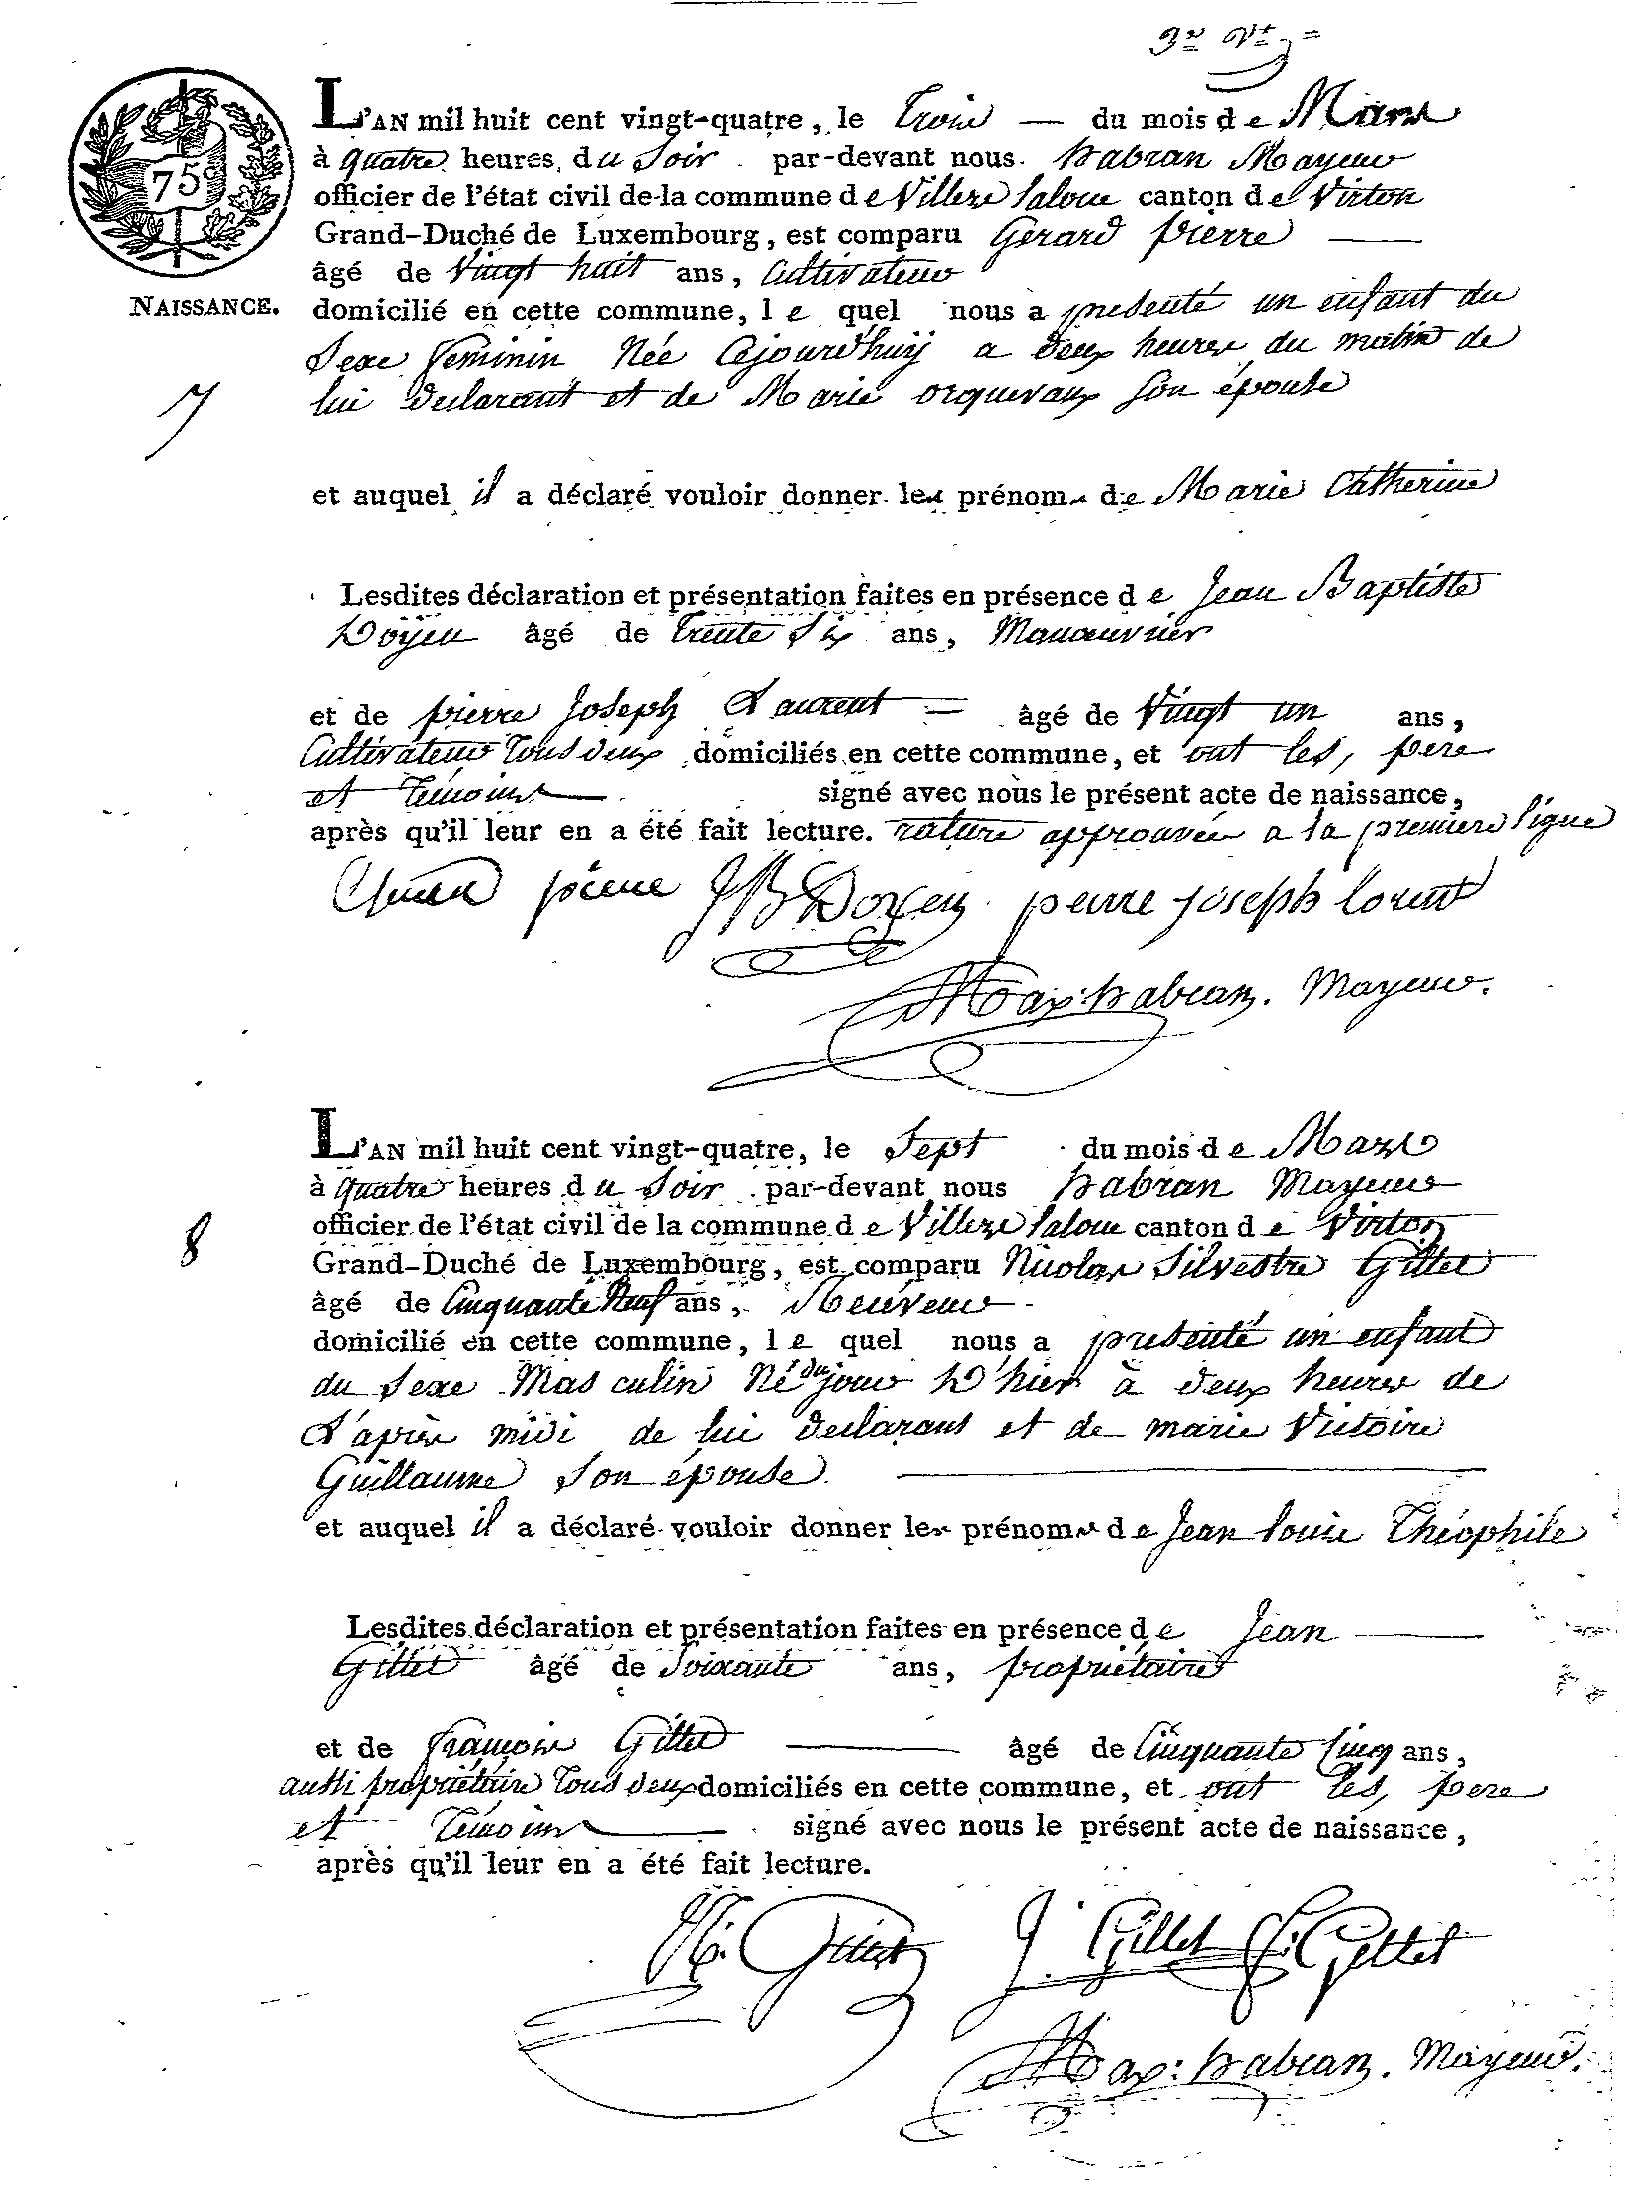 3e Vt
L'AN mil huit cent vingt-quatre, le Trois — du mois de Mars
75c
à quatre heures du Soir par-devant nous habran Mayeur
officier de l'état civil de la commune de Villers laloue canton de Virton
Grand-Duché de Luxembourg, est comparu Gerard pierre —
âgé de Vingt huit ans, Cultivateur
NAISSANCE.
domicilié en cette commune, le quel nous a présenté un enfant du
Sexe feminin Née Ajourd'huy a deux heures du matin de
7
lui declarant et de Marie orquevaux Son épouse
et auquel il a déclaré vouloir donner les prénoms de Marie Catherine
Lesdites déclaration et présentation faites en présence de Jean Baptiste
Doyen âgé de Trente Six ans, Manœuvrier
et de pierre Joseph Laurent — âgé de Vingt un ans,
Cultivateur Tous deux domiciliés en cette commune, et ont les, pere
et Témoins — signé avec nous le présent acte de naissance,
après qu'il leur en a été fait lecture. rature approuvée a la premiere ligne
pierre JB Doyen pierre joseph lorent
Max: habran. Mayeur.
L'AN mil huit cent vingt-quatre, le Sept du mois de Mars
à quatre heures du Soir par-devant nous habran Mayeur
8
officier de l'état civil de la commune de Villers laloue canton de Virton
Grand-Duché de Luxembourg, est comparu Nicolas Silvestre Gillet
âgé de Cinquante Neuf ans,
domicilié en cette commune, le quel nous a présenté un enfant
du Sexe Masculin Né du jour D'hier à deux heures de
L'après midi de lui declarant et de marie Victoire
Guillaume Son épouse. —
et auquel il a déclaré vouloir donner les prénoms de Jean louis Théophile
Lesdites déclaration et présentation faites en présence de Jean —
Gillet âgé de Soixante ans, propriétaire
et de françois Gillet — âgé de Cinquante Cinq ans,
aussi propriétaire Tous deux domiciliés en cette commune, et ont les, pere
et Témoins — signé avec nous le présent acte de naissance,
après qu'il leur en a été fait lecture.
N. Gillet J. Gillet F. Gillet
Max: habran. Mayeur.